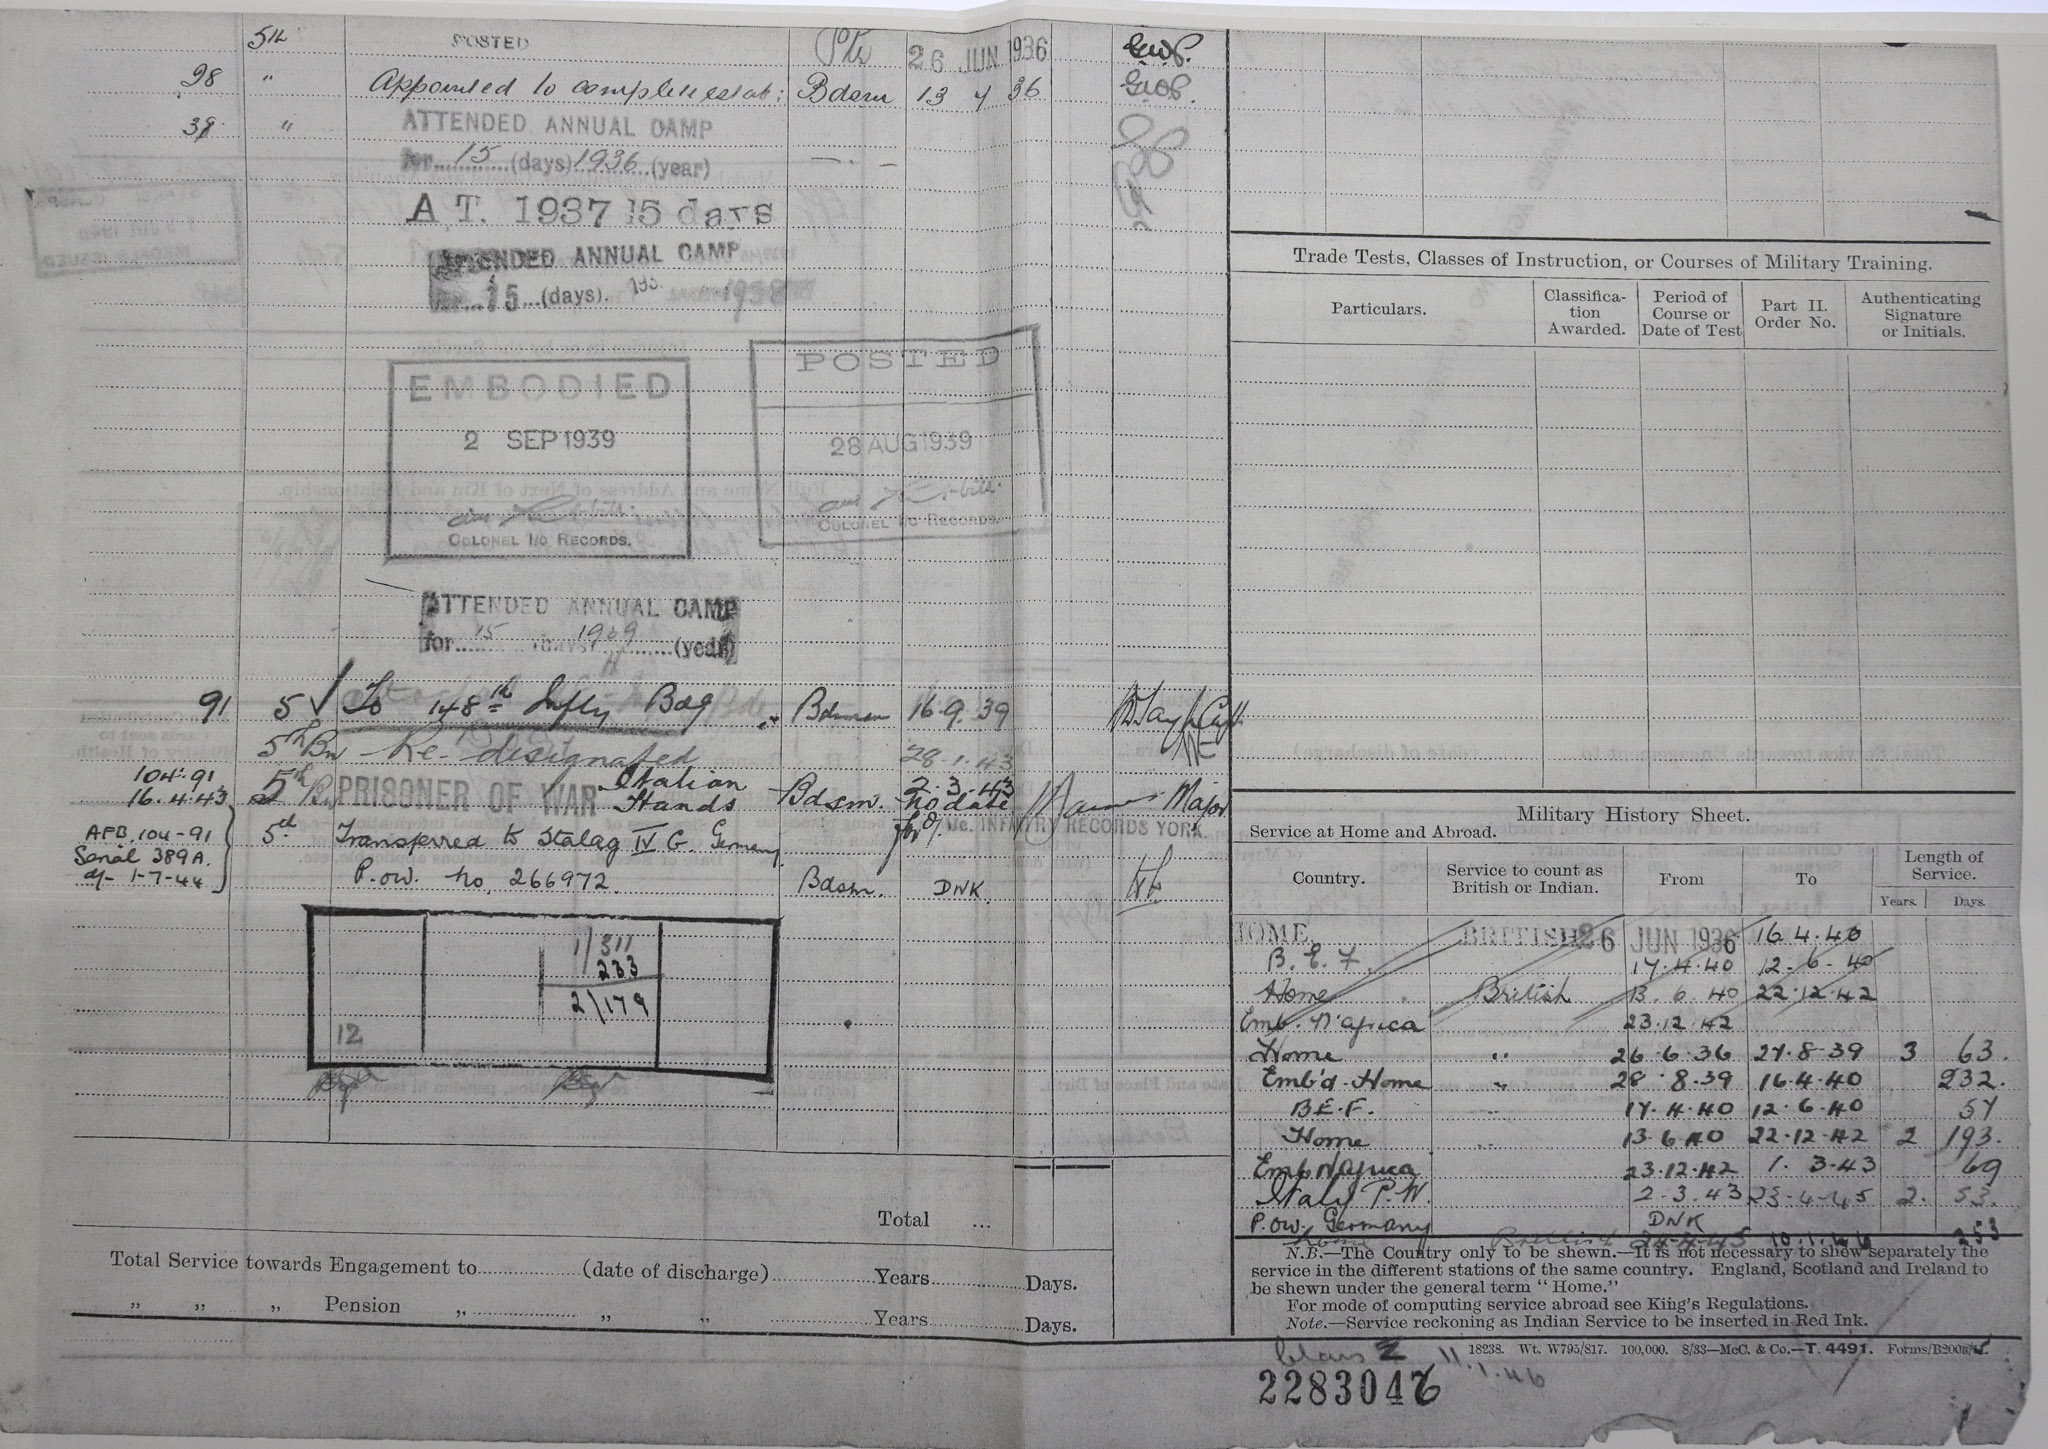 5th POSTED Pte 26 JUN 1936 G.W.P.
98 " Appointed to complete estab: Bdsm 13 7 36 G.W.P.
39 " ATTENDED ANNUAL CAMP
for 15 (days) 1936 (year)
A.T. 1937 15 days
ATTENDED ANNUAL CAMP
15 (days). 1938
EMBODIED
2 SEP 1939
COLONEL I/c RECORDS.
POSTED
28 AUG 1939
COLONEL I/c RECORDS.
ATTENDED ANNUAL CAMP
for 15 (days) 1939 (year)
91 5 To 148th Infty Bdg Bdsman 16.9.39
5th Bn Re-designated 28.1.43
104-91 16.4.43 5th Bn PRISONER OF WAR Italian Hands Bdsm. 2.3.43 no date Major
for I/c. INFANTRY RECORDS YORK.
AFB. 104-91 5th Transferred to Stalag IV G. Germany
Serial 389A.
d/- 1-7-44 P.ow. no. 266972. Bdsm. DNK.
1/311
233
2/179
12
Total ...
Total Service towards Engagement to (date of discharge) Years Days.
" " " Pension " " " Years Days.
Trade Tests, Classes of Instruction, or Courses of Military Training.
Particulars. Classifica-tion Awarded. Period of Course or Date of Test Part II. Order No. Authenticating Signature or Initials.
Military History Sheet.
Service at Home and Abroad.
Country. Service to count as British or Indian. From To Length of Service.
Years. Days.
HOME. BRITISH 26 JUN 1936 16.4.40
B.E.F. 17.4.40 12-6-40
Home British 13.6.40 22.12.42
Emb. N'africa 23.12.42
Home " 26.6.36 27.8.39 3 63.
Emb'd-Home " 28.8.39 16.4.40 232.
B.E.F. " 17.4.40 12.6.40 57
Home " 13.6.40 22.12.42 2 193.
Emb N'africa 23.12.42 1.3.43 69
Italy P.W. 2.3.43 23-4-45 2. 53.
P.ow. Germany DNK
Home British 24.4.45 10.1.46 253
N.B.—The Country only to be shewn.—It is not necessary to shew separately the
service in the different stations of the same country. England, Scotland and Ireland to
be shewn under the general term "Home."
For mode of computing service abroad see King's Regulations.
Note.—Service reckoning as Indian Service to be inserted in Red Ink.
18238. Wt. W795/817. 100,000. 8/33—McC. & Co.—T. 4491. Forms/B200B/
Class Z 11.1.46
2283046